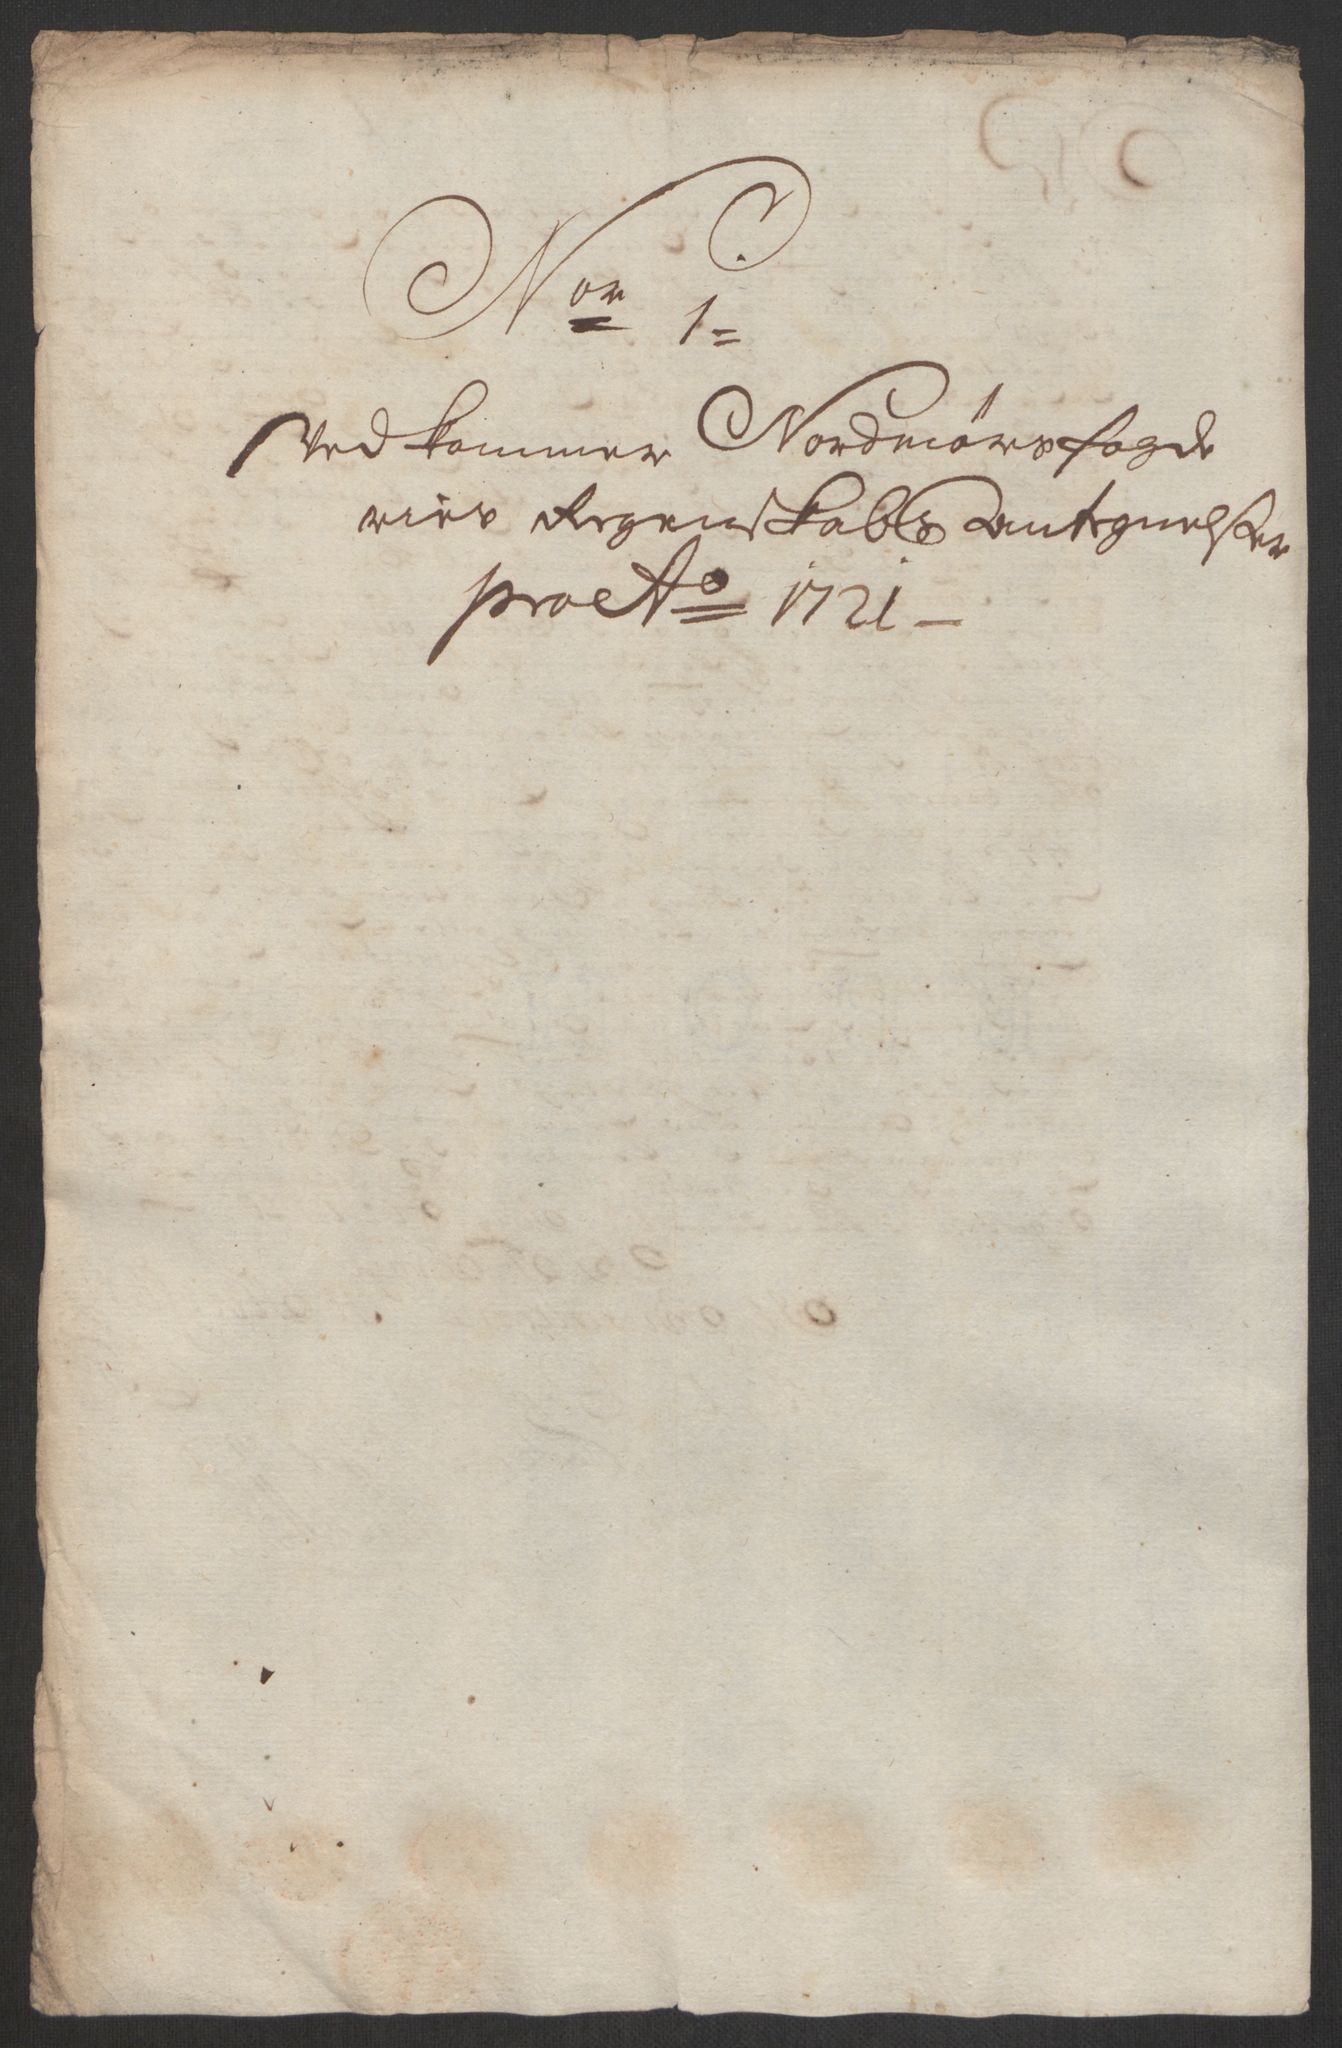 Nor 1=
Ved kommer Nordmørs fogde
ries Regenskabs Antegnelser
pro Ao 1721 —